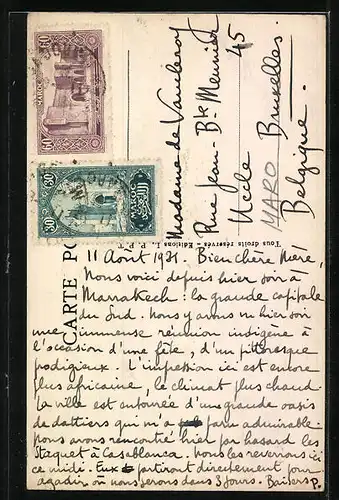 60 MAROC 60
30 MAROC 30
CARTE PO
Tous droits réservés - Editions L. P. P. T.
Madame de Vauleroy
Rue Jean-Bte Meunier
45
Uccle
MARO Bruxelles.
Belgique.
11 Août 1931. Bien chère Meré,
Nous voici depuis hier soir à
Marrakech : la grande capitale
du Sud. Nous y avons vu hier soir
une immense réunion indigène à
l'occasion d'une fête, d'un pittoresque
prodigieux. L'impression ici est encore
plus africaine, le climat plus chaud.
La ville est entourée d'une grande oasis
de dattiers qui m'a paru admirable.
Nous avons rencontré hier par hasard les
Staquet à Casablanca. Nous les reverrons ici
ce midi. Eux partiront directement pour
Agadir où nous serons dans 3 jours. Baisers P.